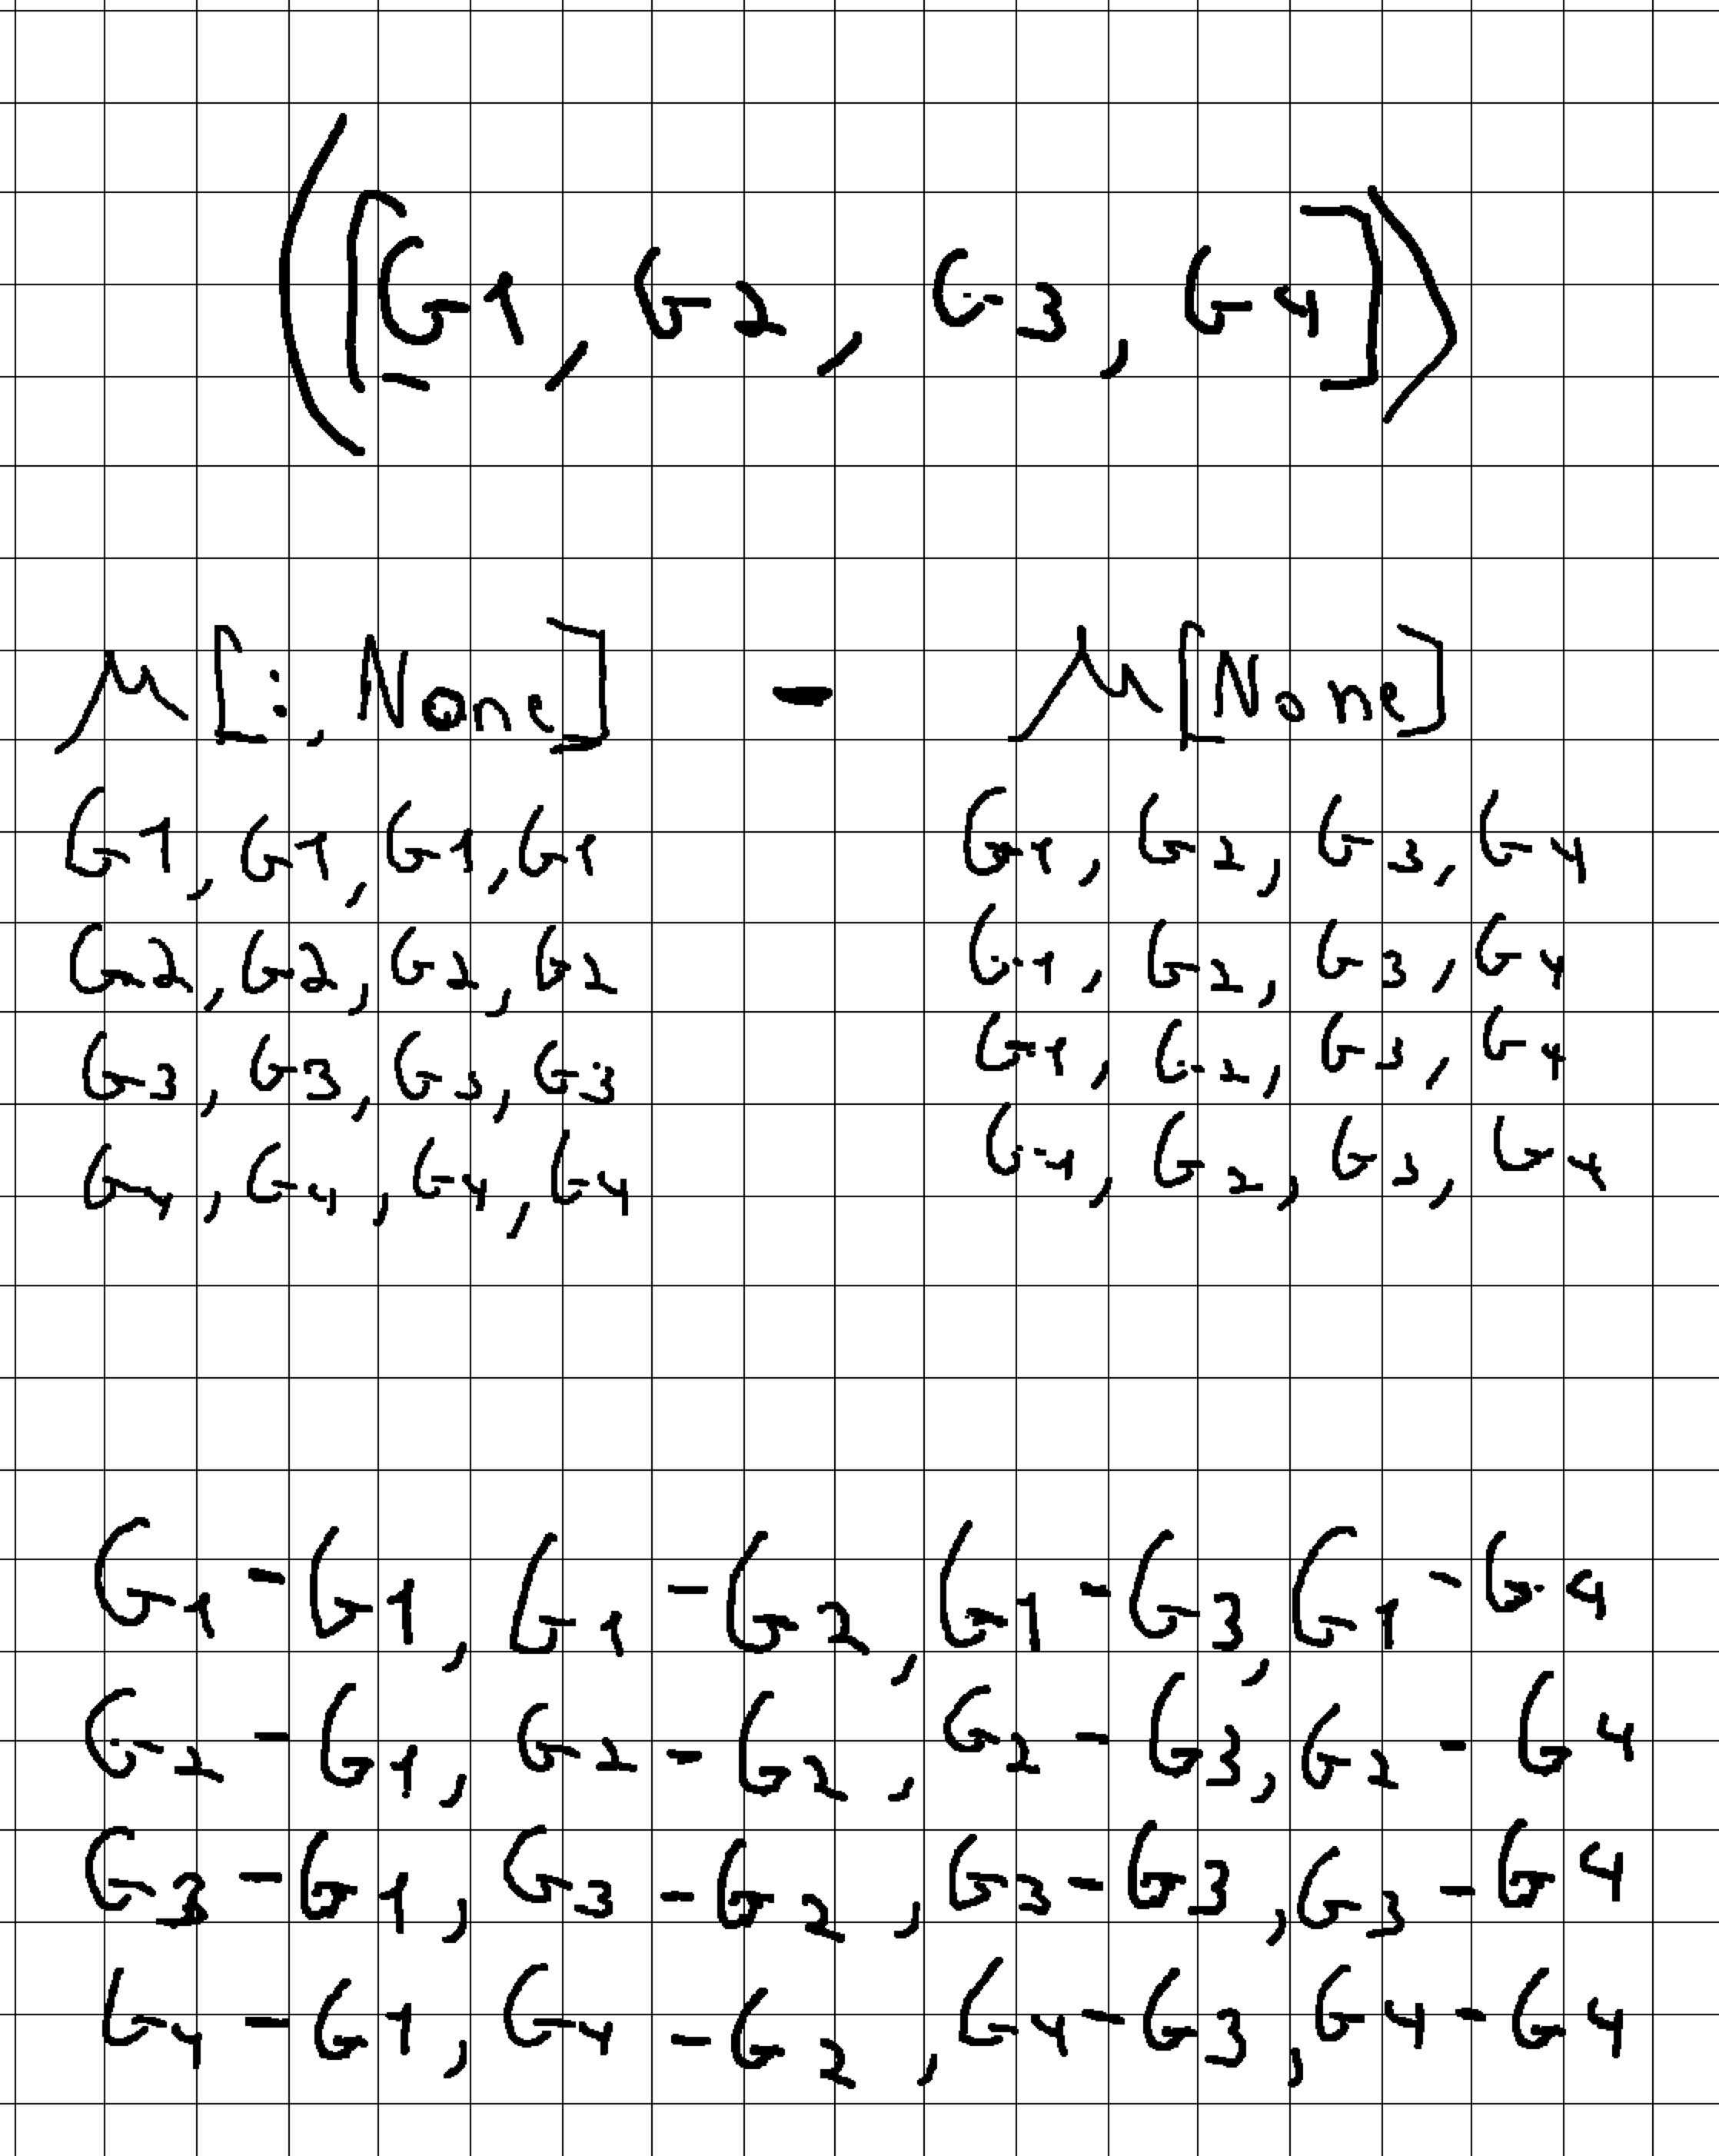 ([G1, G2, G3, G4])
μ[:, None] - μ[None]
G1, G1, G1, G1 G1, G2, G3, G4
G2, G2, G2, G2 G1, G2, G3, G4
G3, G3, G3, G3 G1, G2, G3, G4
G4, G4, G4, G4 G1, G2, G3, G4
G1 - G1, G1 - G2, G1 - G3, G1 - G4
G2 - G1, G2 - G2, G2 - G3, G2 - G4
G3 - G1, G3 - G2, G3 - G3, G3 - G4
G4 - G1, G4 - G2, G4 - G3, G4 - G4